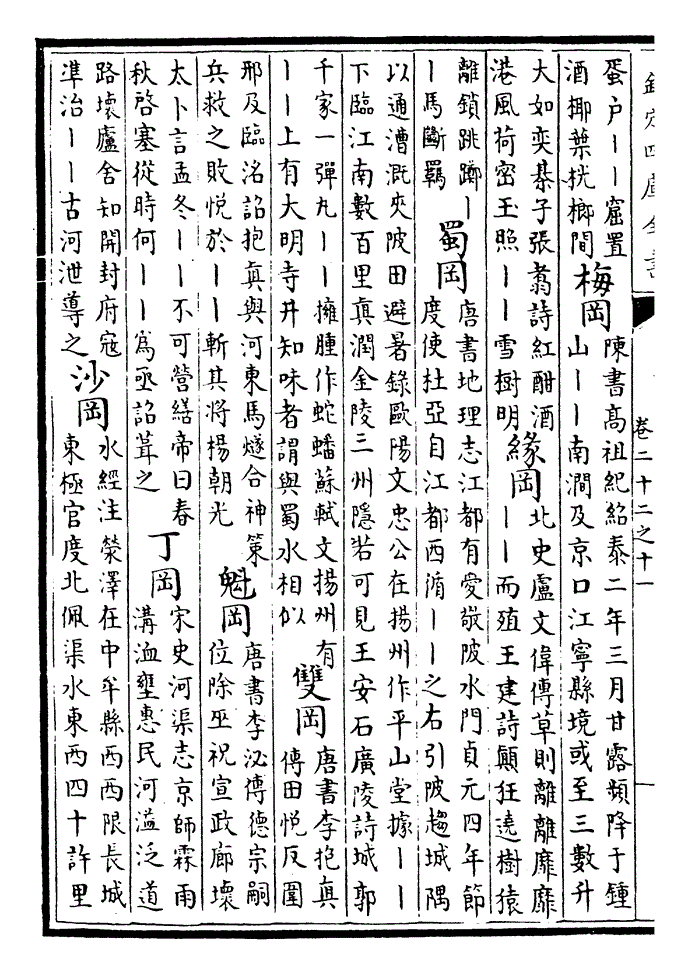 欽定四庫全書
卷二十二之十一
蛋户丨丨窟置
酒揶葉桄榔間
梅岡
陳書髙祖紀紹泰二年三月甘露頻降于鍾
山丨丨南澗及京口江寧縣境或至三數升
大如奕棊子張翥詩紅酣酒
港風荷密玉照丨丨雪樹明
緣岡
北史盧文偉傳草則離離靡靡
丨丨而殖王建詩顛狂遶樹猿
離鎖跳躑丨
丨馬斷羈
蜀岡
唐書地理志江都有愛敬陂水門貞元四年節
度使杜亞自江都西循丨丨之右引陂趨城隅
以通漕溉夾陂田避暑錄歐陽文忠公在揚州作平山堂據丨丨
下臨江南數百里真潤金陵三州隱若可見王安石廣陵詩城郭
千家一彈丸丨丨擁腫作蛇蟠蘇軾文揚州有
丨丨上有大明寺井知味者謂與蜀水相似
雙岡
唐書李抱真
傳田悦反圍
邢及臨洺詔抱真與河東馬燧合神策
兵救之敗悦於丨丨斬其將楊朝光
魁岡
唐書李泌傳德宗嗣
位除巫祝宣政廊壞
太卜言孟冬丨丨不可營繕帝曰春
秋啓塞從時何丨丨為亟詔葺之
丁岡
宋史河渠志京師霖雨
溝洫壅惠民河溢泛道
路壞廬舍知開封府寇
準治丨丨古河泄導之
沙岡
水經注滎澤在中牟縣西西限長城
東極官度北佩渠水東西四十許里